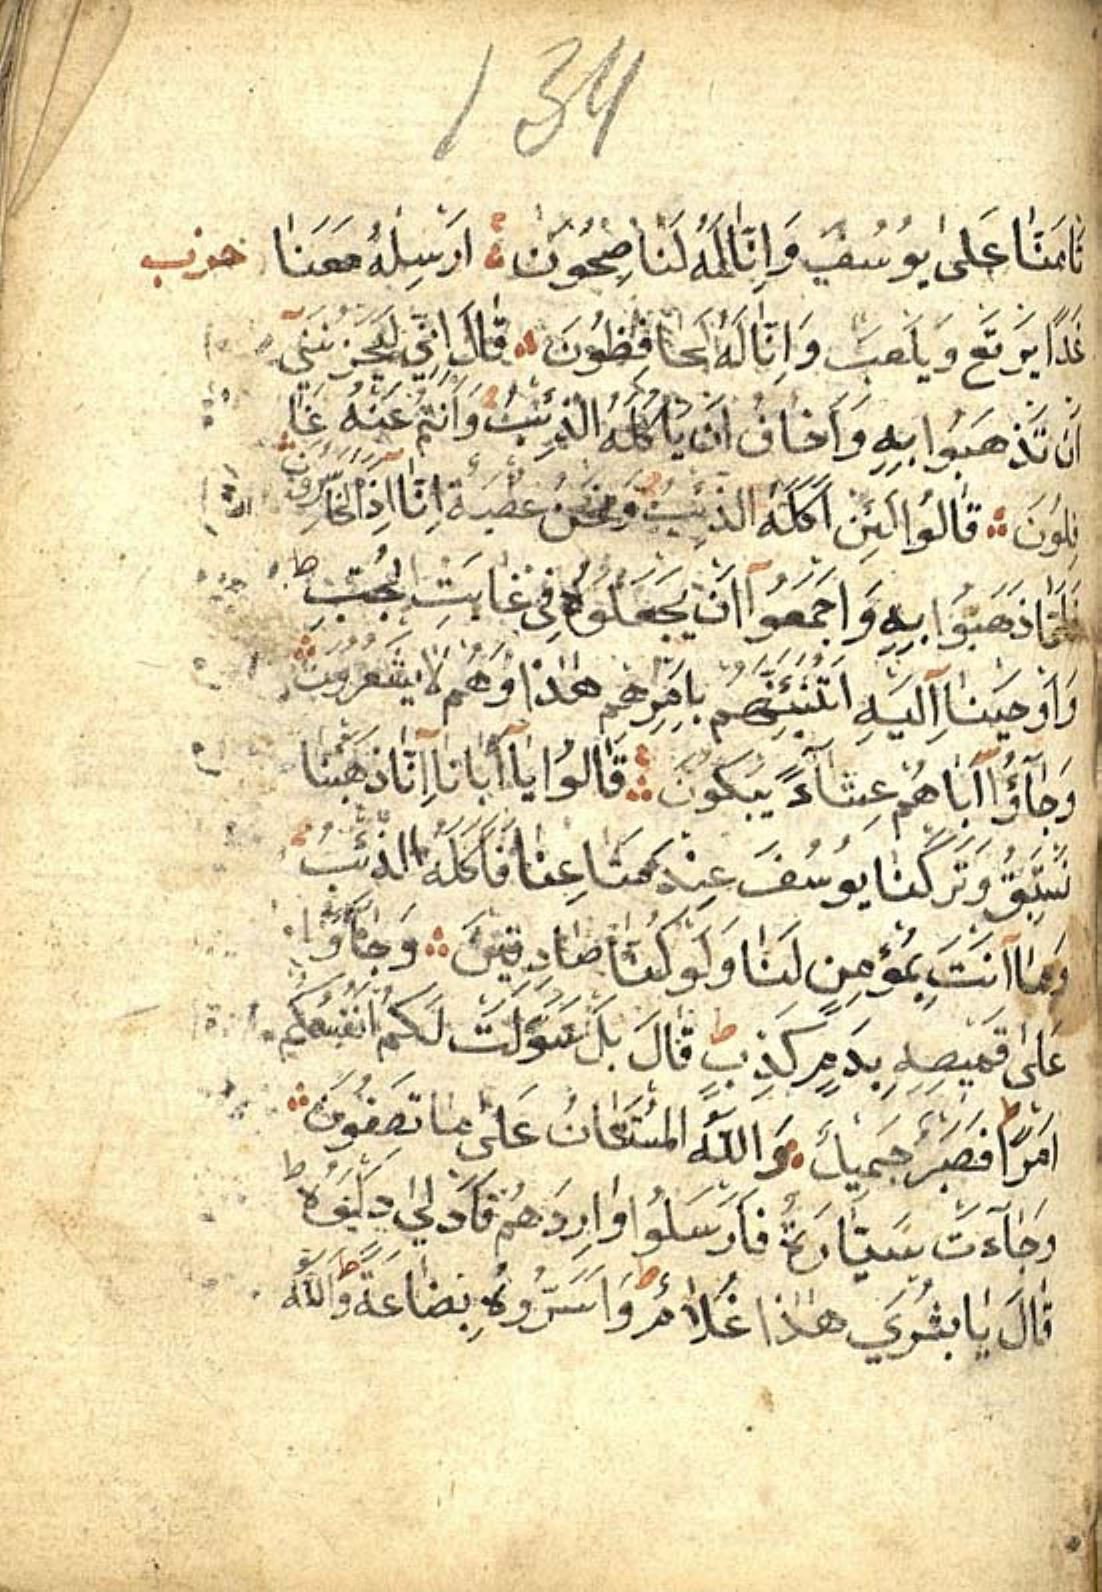 134
تَامَنَّا عَلىٰ يُوسُفَ وَاِنَّا لَهُ لَنَاصِحُونَ ۞ اَرْسِلْهُ مَعَنَا حزب
غَدًا يَرْتَعْ وَيَلْعَبْ وَاِنَّا لَهُ لَحَافِظُونَ ۞ قَالَ اِنِّي لَيَحْزُنُنِيٓ
اَنْ تَذْهَبُوا بِهِ وَاَخَافُ اَنْ يَاْكُلَهُ الذِّئْبُ وَاَنْتُمْ عَنْهُ غَا
فِلُونَ ۞ قَالُوا لَئِنْ اَكَلَهُ الذِّئْبُ وَنَحْنُ عُصْبَةٌ اِنَّا اِذًا لَخَاسِرُونَ ۞
فَلَمَّا ذَهَبُوا بِهِ وَاَجْمَعُوٓا اَنْ يَجْعَلُوهُ فِي غَيَابَتِ الْجُبِّ ط
وَاَوْحَيْنَآ اِلَيْهِ لَتُنَبِّئَنَّهُمْ بِاَمْرِهِمْ هٰذَا وَهُمْ لَا يَشْعُرُونَ ۞
وَجَآؤُٓا اَبَاهُمْ عِشَآءً يَبْكُونَ ۞ قَالُوا يَآ اَبَانَآ اِنَّا ذَهَبْنَا
نَسْتَبِقُ وَتَرَكْنَا يُوسُفَ عِنْدَ مَتَاعِنَا فَاَكَلَهُ الذِّئْبُ
وَمَآ اَنْتَ بِمُؤْمِنٍ لَنَا وَلَوْ كُنَّا صَادِقِينَ ۞ وَجَآؤُا
عَلىٰ قَمِيصِهِ بِدَمٍ كَذِبٍ ط قَالَ بَلْ سَوَّلَتْ لَكُمْ اَنْفُسُكُمْ
اَمْرًا ط فَصَبْرٌ جَمِيلٌ وَاللّٰهُ الْمُسْتَعَانُ عَلىٰ مَا تَصِفُونَ ۞
وَجَآءَتْ سَيَّارَةٌ فَاَرْسَلُوا وَارِدَهُمْ فَاَدْلىٰ دَلْوَهُ ط
قَالَ يَا بُشْرٰي هٰذَا غُلَامٌ ط وَاَسَرُّوهُ بِضَاعَةً ط وَاللّٰهُ